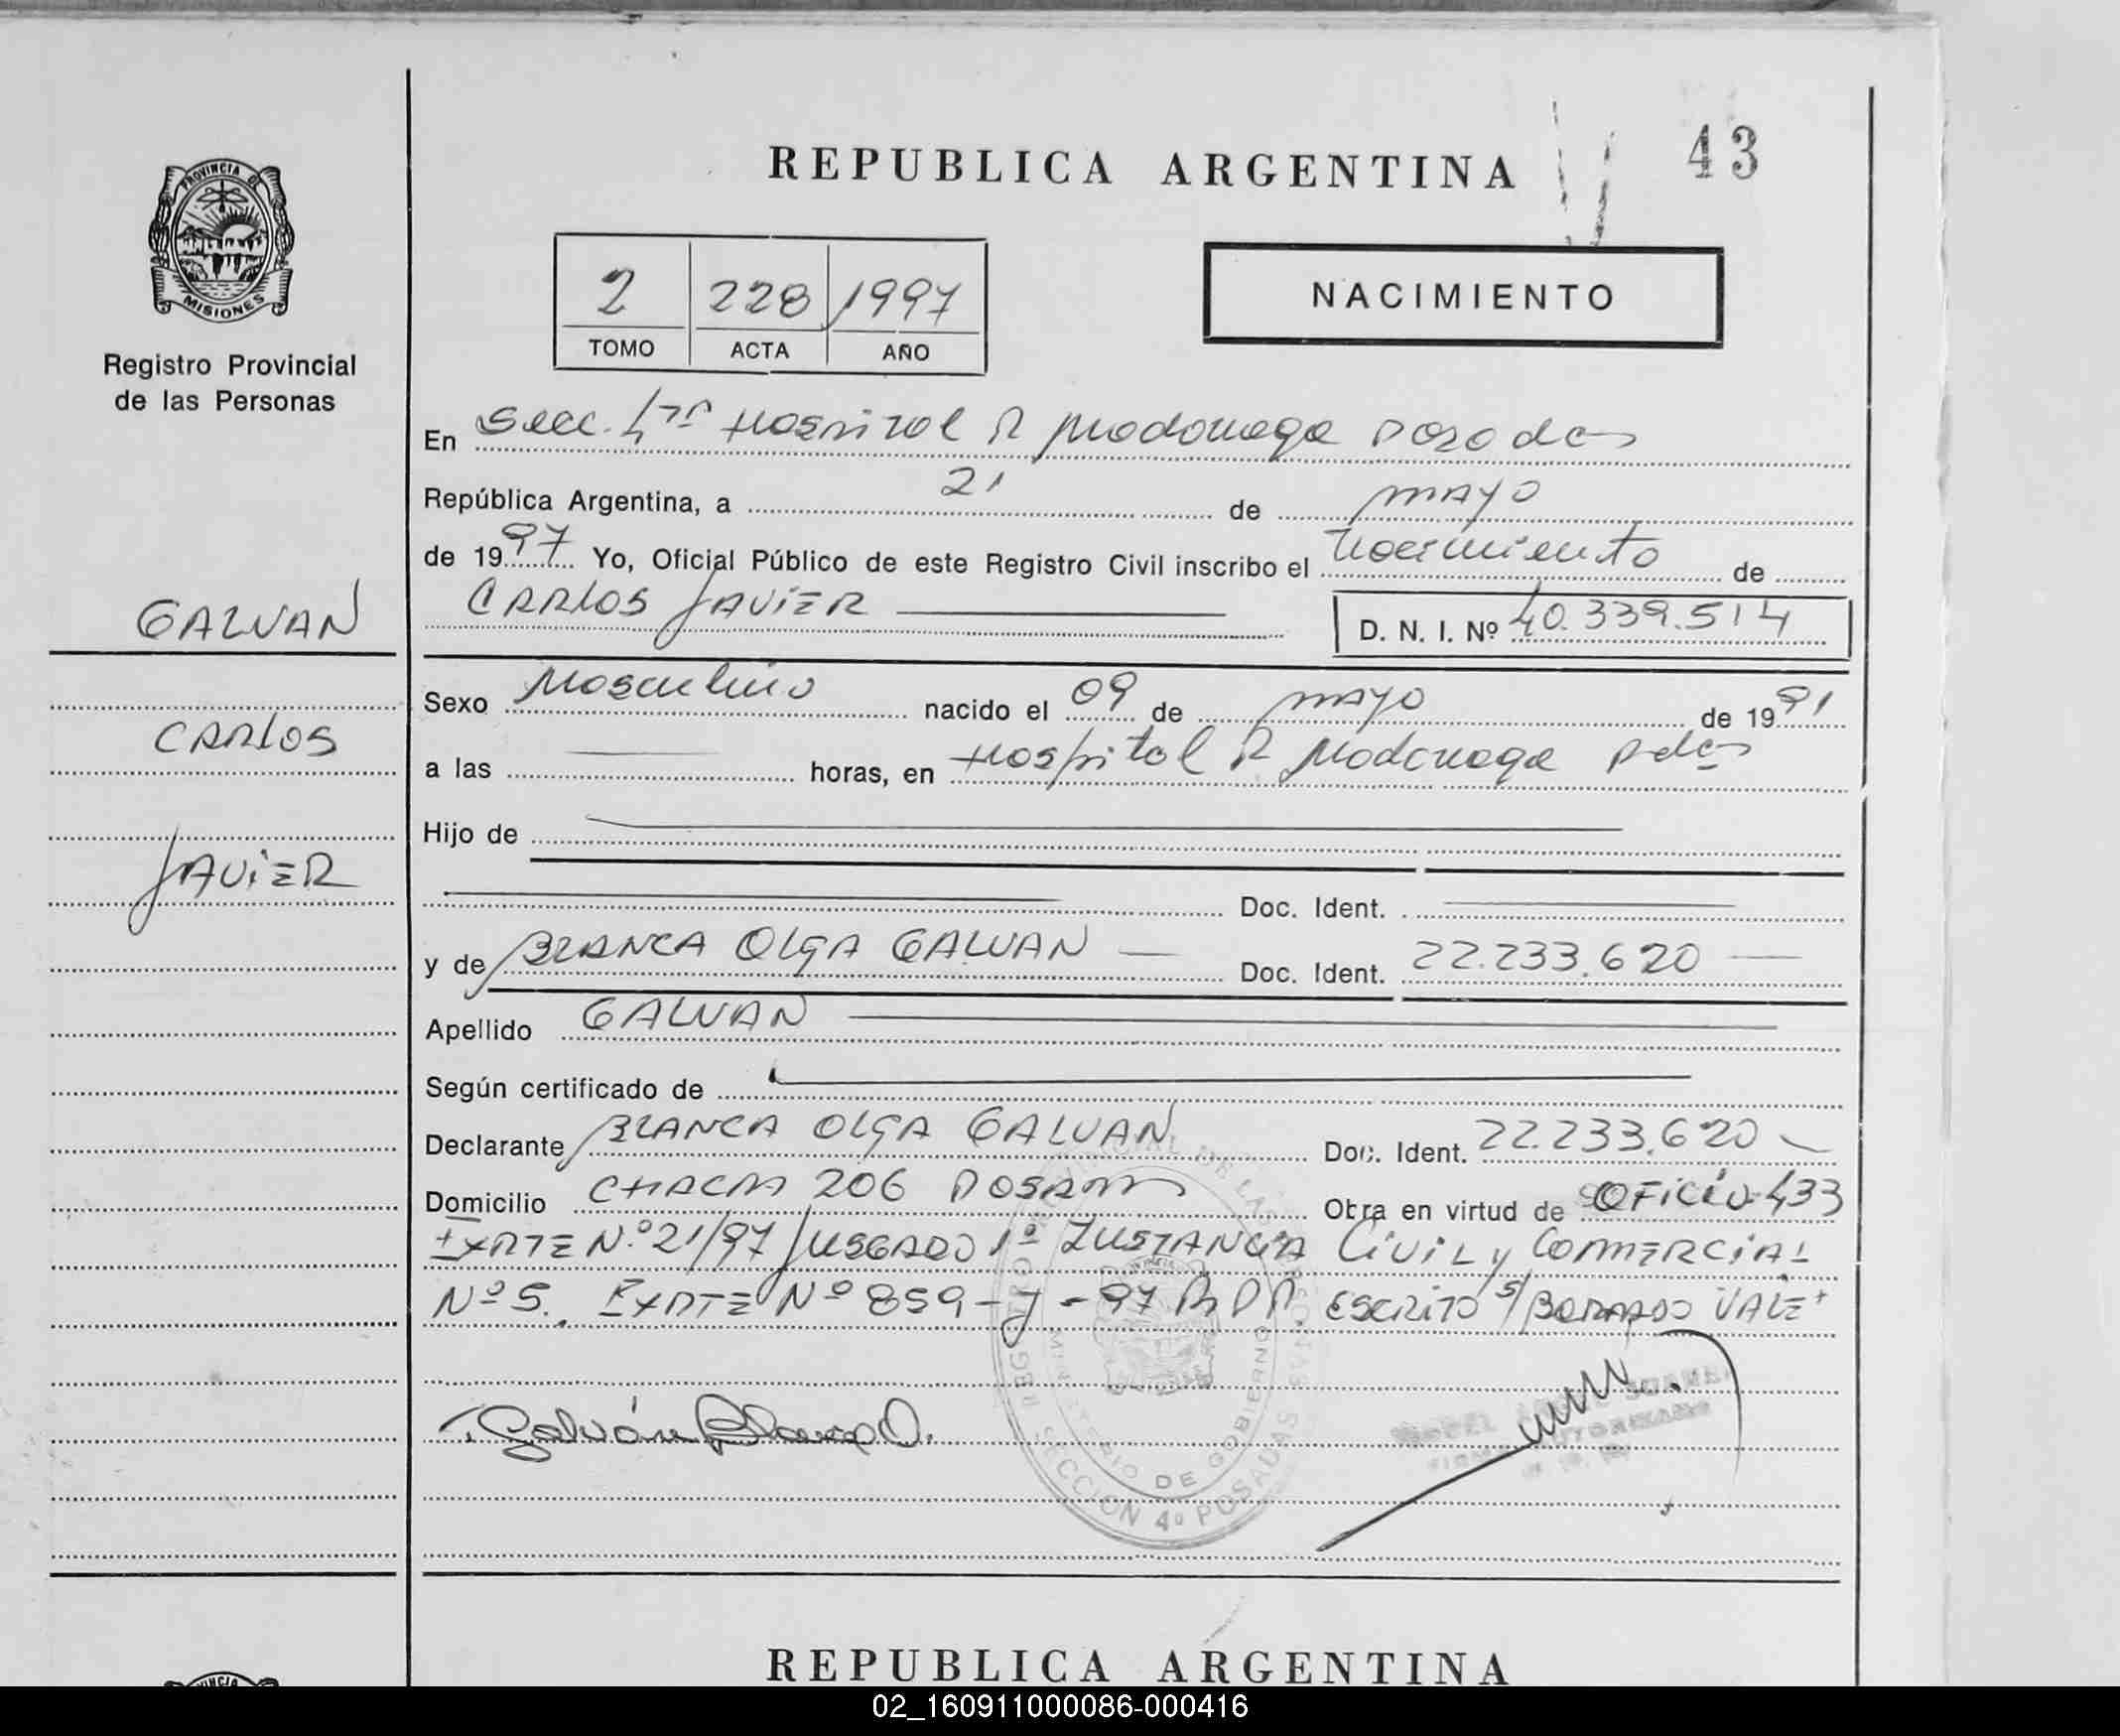 REPUBLICA ARGENTINA
43
PROVINCIA DE
MISIONES
Registro Provincial
de las Personas
2 228 1997
TOMO ACTA AÑO
NACIMIENTO
En Secc. 4ta Hospital R Madariaga Posadas
República Argentina, a 21 de mayo
de 1997 Yo, Oficial Público de este Registro Civil inscribo el Nacimiento de
CARLOS JAVIER D. N. I. Nº 40.339.514
GALVAN
CARLOS
JAVIER
Sexo Masculino nacido el 09 de mayo de 1991
a las horas, en Hospital R Madariaga Pdas
Hijo de
Doc. Ident.
y de BLANCA OLGA GALVAN Doc. Ident. 22.233.620
Apellido GALVAN
Según certificado de
Declarante BLANCA OLGA GALVAN Doc. Ident. 22.233.620
Domicilio CHACRA 206 POSADAS Obra en virtud de OFICIO 433
EXPTE N.º 21/97 JUSGADO 1º INSTANCIA CIVIL y COMMERCIAL
Nº 5. EXPTE Nº 859-J-97 R.P.P. ESCRITO S/BORRADO VALE
Galván Blanca O.
MINISTERIO DE GOBIERNO
SECCION 4º POSADAS
REPUBLICA ARGENTINA
02_160911000086-000416